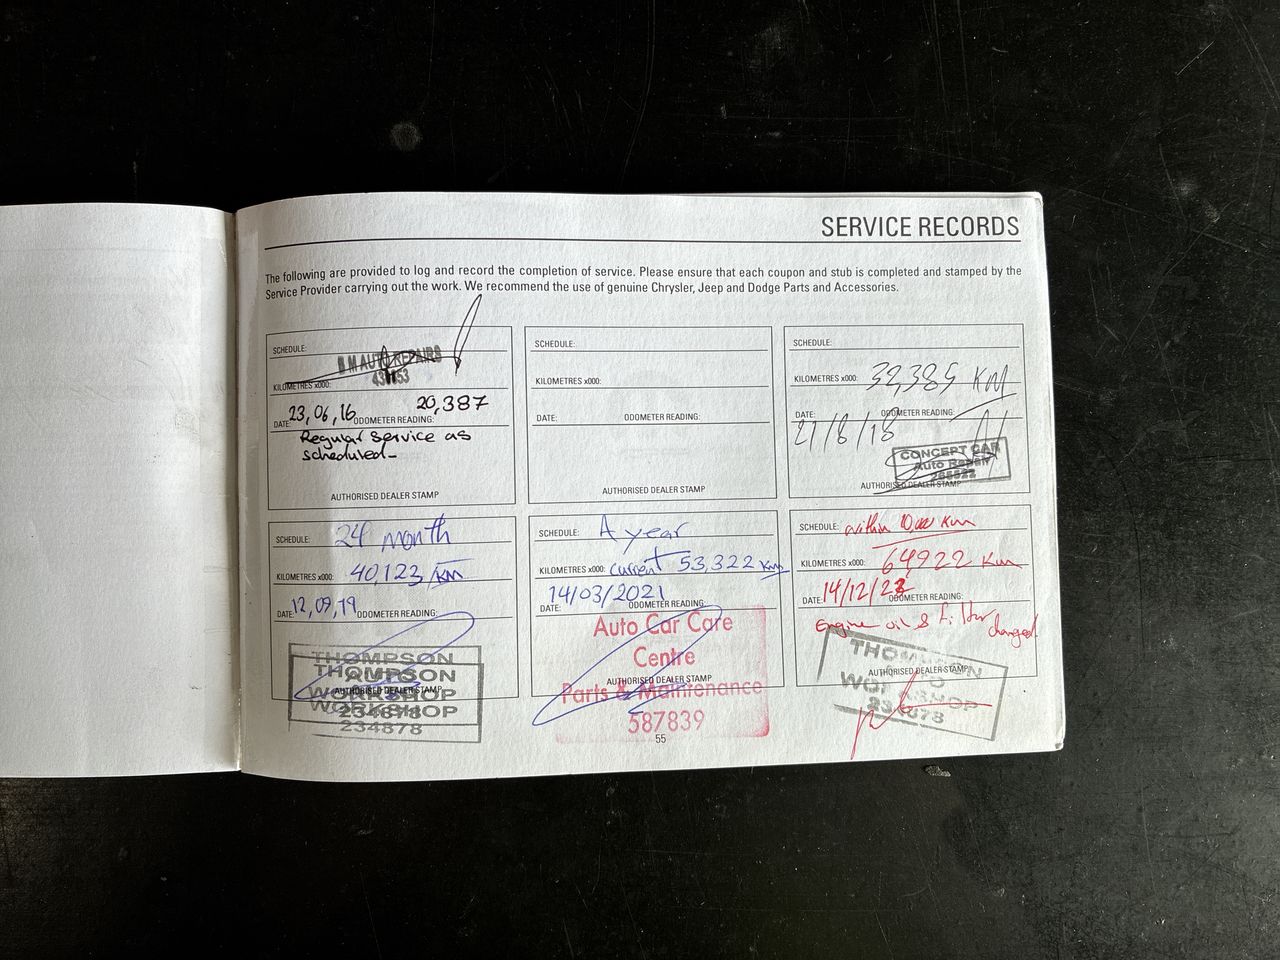 SERVICE RECORDS
The following are provided to log and record the completion of service. Please ensure that each coupon and stub is completed and stamped by the
Service Provider carrying out the work. We recommend the use of genuine Chrysler, Jeep and Dodge Parts and Accessories.
SCHEDULE:
B M AUTO REPAIRS
KILOMETRES x000:
DATE: 23,06,16 ODOMETER READING: 20,387
Regular service as
scheduled-
AUTHORISED DEALER STAMP
SCHEDULE:
KILOMETRES x000:
DATE: ODOMETER READING:
AUTHORISED DEALER STAMP
SCHEDULE:
KILOMETRES x000: 32,385 KM
DATE: ODOMETER READING:
21/8/18
CONCEPT CAR
Auto Repair
AUTHORISED DEALER STAMP
SCHEDULE: 24 month
KILOMETRES x000: 40,123 KM
DATE: 12,09,19 ODOMETER READING:
THOMPSON
THOMPSON
WORKSHOP
AUTHORISED DEALER STAMP
WORKSHOP
234878
234878
SCHEDULE: A year
KILOMETRES x000: current 53,322 Km
14/03/2021
DATE: ODOMETER READING:
Auto Car Care
Centre
AUTHORISED DEALER STAMP
Parts & Maintenance
587839
SCHEDULE: within 10,000 Km
KILOMETRES x000: 64922 Km
DATE: 14/12/22 ODOMETER READING:
Engine oil & filter changed
THOMPSON
AUTHORISED DEALER STAMP
WORKSHOP
234878
55